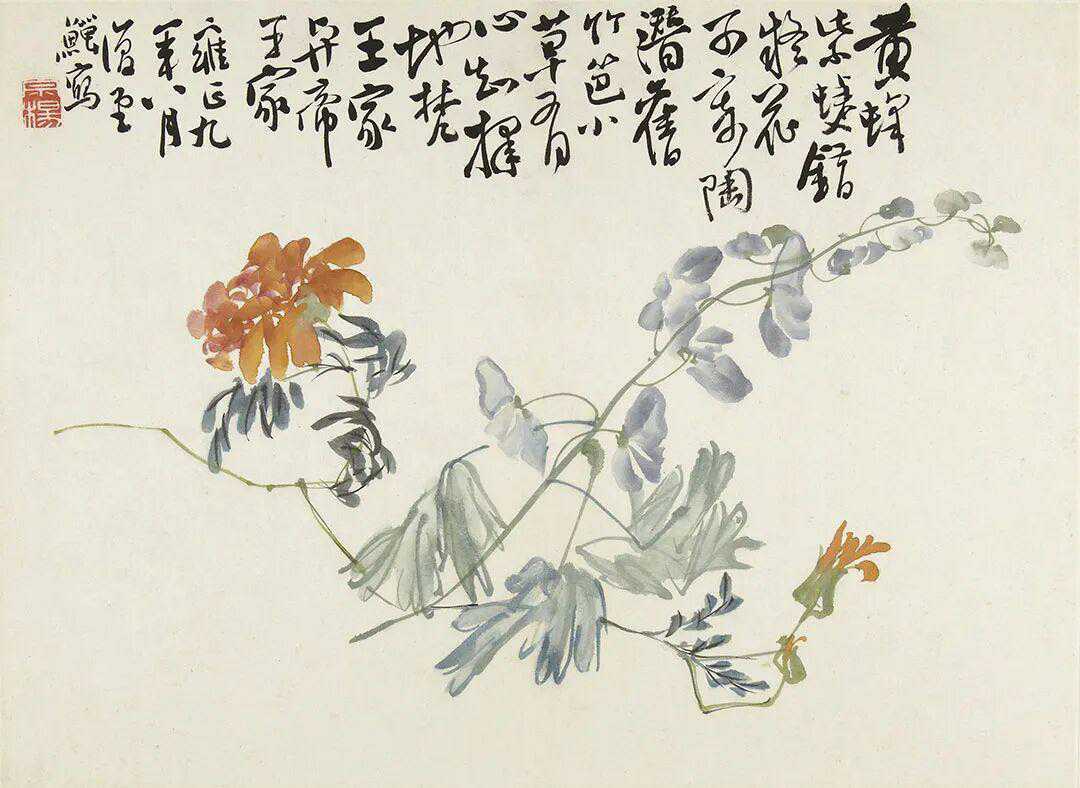 黄蜂
紫蝶錯
花
不陶
潛舊
竹笆小
草有
心知擇
地梵
王家
帝
王家
雍正九
年八月
復堂
鱓寫
宗揚